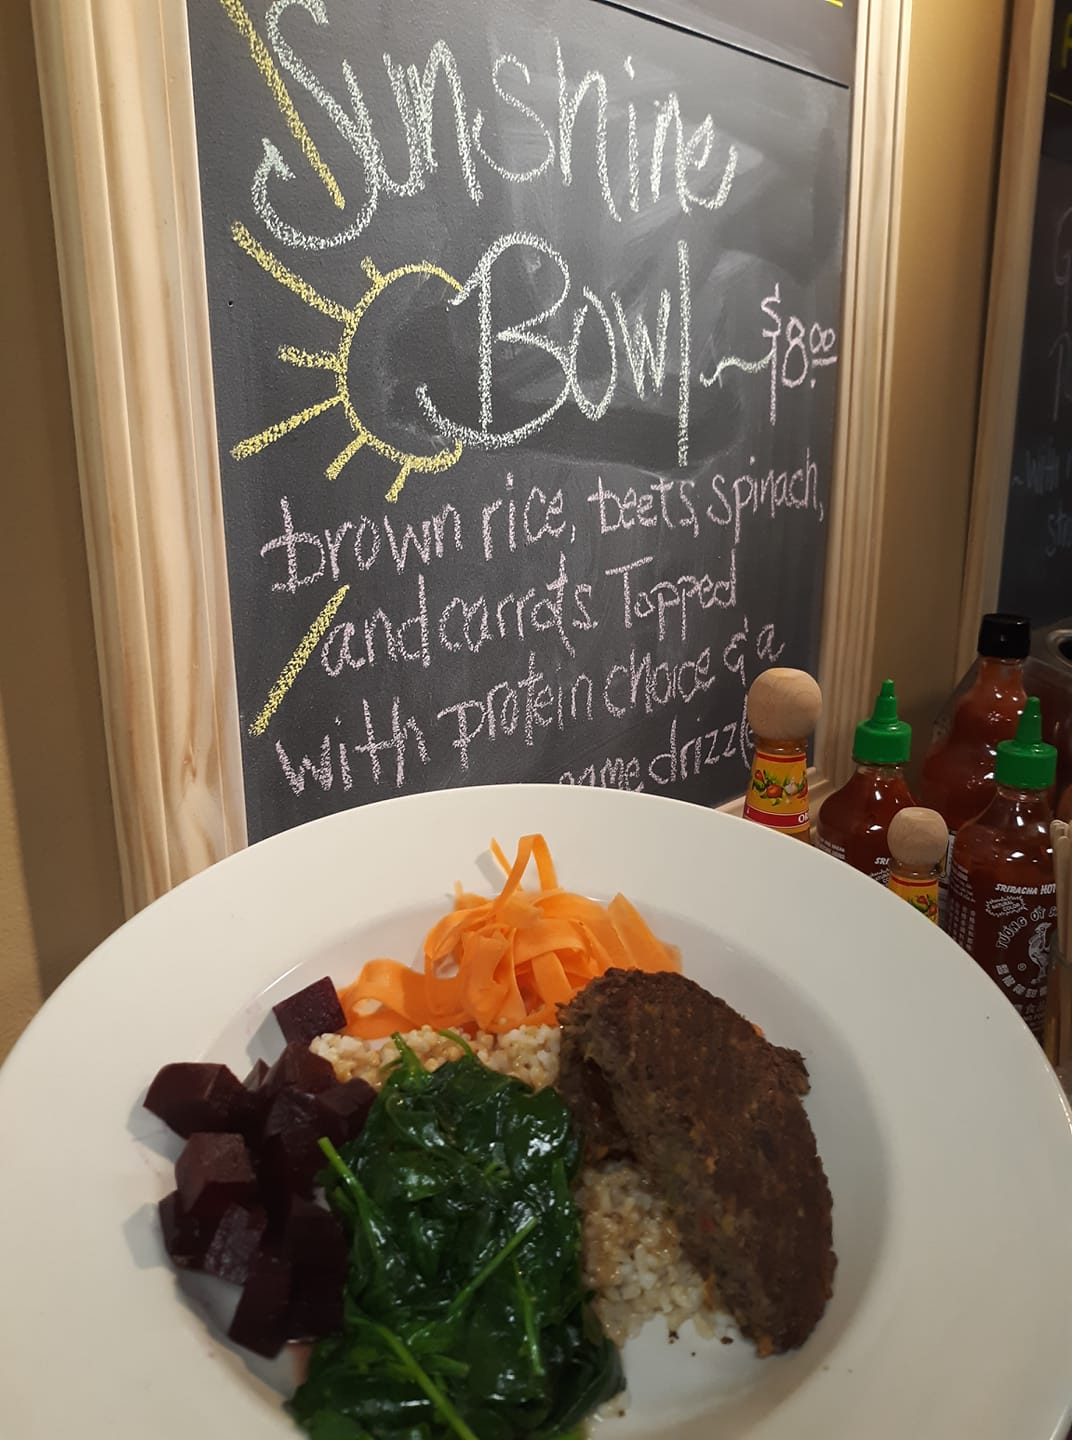 Sunshine
Bowl ~ $8.00
brown rice, beets, spinach,
and carrots. Topped
with protein choice & a
drizzle
SRIRACHA HOT
TƯƠNG ỚT